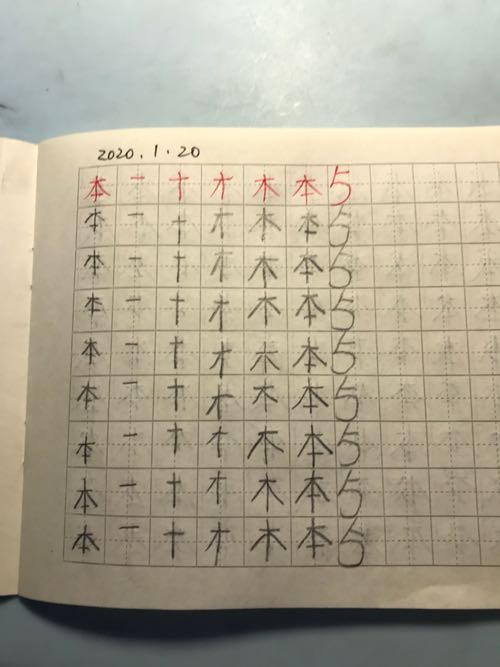 2020.1.20
本 一 十 才 木 本 5
本 一 十 才 木 本 5
本 一 十 才 木 本 5
本 一 十 才 木 本 5
本 一 十 才 木 本 5
本 一 十 才 木 本 5
本 一 十 才 木 本 5
本 一 十 才 木 本 5
本 一 十 才 木 本 5